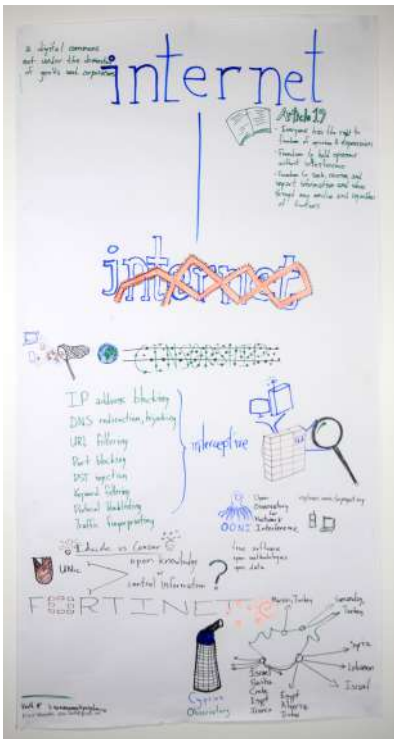 a digital commons
not under the domain
of govts and corporations
internet
Article 19
- Everyone has the right to
freedom of opinion & expression
- Freedom to hold opinions
without interference
- Freedom to seek, receive and
impart information and ideas
through any media and regardless
of frontiers
internet
IP address blocking
DNS redirection, hijacking
URL filtering
Port blocking
RST injection
Keyword filtering
Protocol blacklisting
Traffic fingerprinting
interceptive
Open
Observatory
for
Network
Interference
OONI
free software
open methodologies
open data
Educate vs Censor
open knowledge
or
control information
?
FORTINET
Turkey
Turkey
Syria
Lebanon
Israel
Israel
Egypt
Egypt
Algeria
Cyprus
Observatory